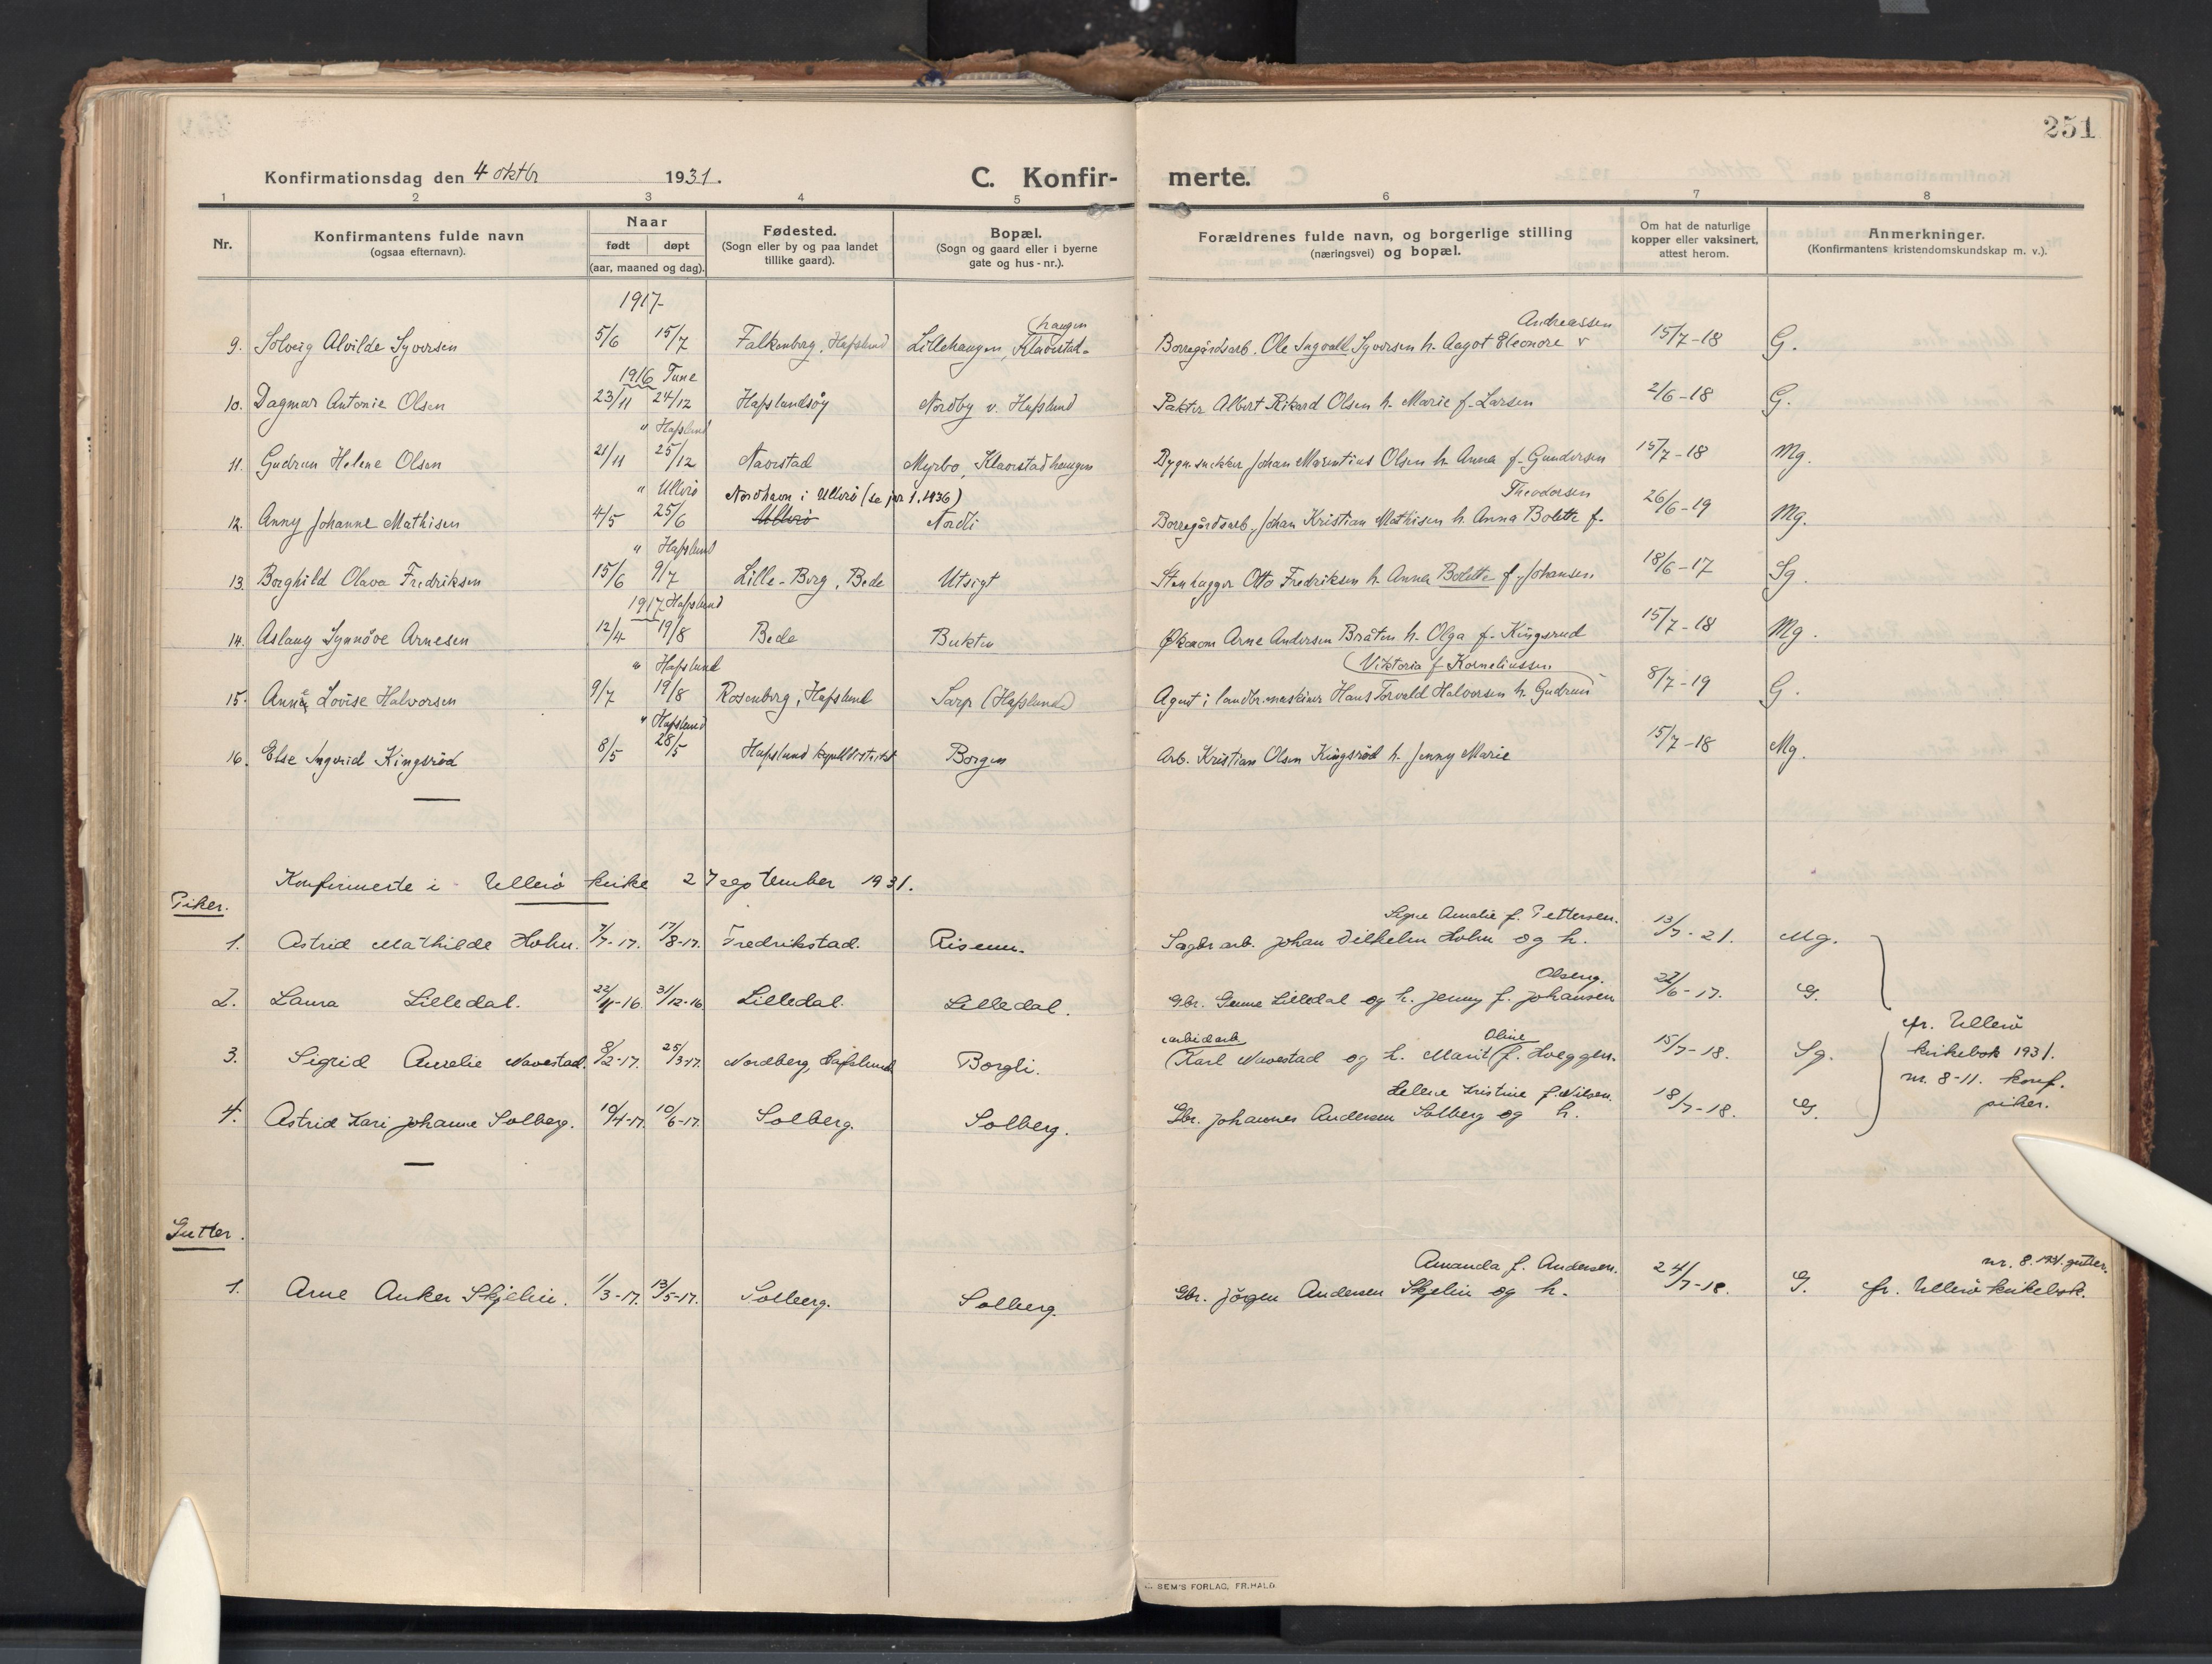 251
Konfirmationsdag den 4 oktbr 1931. C. Konfir- merte.
1 2 3 4 5 6 7 8
Nr.
Konfirmantens fulde navn
(ogsaa efternavn).
Naar
født døpt
(aar, maaned og dag).
Fødested.
(Sogn eller by og paa landet
tillike gaard).
Bopæl.
(Sogn og gaard eller i byerne
gate og hus - nr.).
Forældrenes fulde navn, og borgerlige stilling
(næringsvei) og bopæl.
Om hat de naturlige
kopper eller vaksinert,
attest herom.
Anmerkninger.
(Konfirmantens kristendomskundskap m. v.).
1917-
haugen Andreassen
9. Solveig Alvilde Syversen 5/6 15/7 Falkenberg, Hafslund Lillehaugen, Klavestad- Borregårdsarb. Ole Ingvald Syversen h. Aagot Eleonore 15/7-18 G.
1916 Tune
10. Dagmar Antonie Olsen 23/11 24/12 Hafslundsøy Nordby v. Hafslund Pakter Albert Rikard Olsen h. Marie f. Larsen 2/6-18 G.
" Hafslund
11. Gudrun Helene Olsen 21/11 25/12 Navestad Myrbo, Klavestadhaugen Bygn.snekker Johan Marentius Olsen h. Anna f. Gundersen 15/7-18 Mg.
" Ullerø Nordhavn i Ullerø (se jnr 1.1936) Theodorsen
12. Anny Johanne Mathisen 4/5 25/6 Ullerø Nordli Borregårdsarb. Johan Kristian Mathisen h. Anna Bolette f. 26/6-19 Mg.
" Hafslund
13. Borghild Olava Fredriksen 15/6 9/7 Lille-Borg, Bede Utsigt Stenhugger Otto Fredriksen h. Anna Bolette f. Johansen 18/6-17 Sg.
1917 Hafslund
14. Aslaug Synnøve Arnesen 12/4 19/8 Bede Bukten Økonom Arne Andersen Bråten h. Olga f. Kingsrud 15/7-18 Mg.
" Hafslund (Viktoria f. Korneliussen
15. Anna Lovise Halvorsen 9/7 19/8 Rosenberg, Hafslund Sarp (Hafslund) Agent i landbr.maskiner Hans Torvald Halvorsen h. Gudrun 8/7-19 G.
" Hafslund
16. Else Ingerid Kingsrød 8/5 28/5 Hafslund kapelldistrikt Borgen Arb. Kristian Olsen Kingsrød h. Jenny Marie 15/7-18 Mg.
Konfirmerte i Ullerø kirke 27 september 1931.
Piker.
Signe Amalie f. Pettersen.
1. Astrid Mathilde Holm. 7/7-17. 17/8-17. Fredrikstad. Risenn. Sagbr.arb. Johan Vilhelm Holm og h. 13/7-21. Mg.
Olseng.
2. Laura Lilledal. 22/11-16. 31/12-16. Lilledal. Lilledal. Gbr. Gunne Lilledal og h. Jenny f. Johansen 22/6-17. G.
fr. Ullerø
arbid.arb. Oline
3. Sigrid Aurelie Navestad. 8/2-17. 25/3-17. Nordberg, Hafslund Borgli. (Karl Navestad og h. Marit (f. Hveggen. 15/7-18. Sg. kirkebok 1931.
nr. 8-11. konf.
Helene Kristine f. Nilsen.
4. Astrid Kari Johanne Solberg. 10/4-17. 10/6-17. Solberg. Solberg. Gbr. Johannes Andersen Solberg og h. 18/7-18. G. piker.
Gutter.
Amanda f. Andersen. nr. 8. 1931. gutter.
1. Arne Anker Skjelin. 1/3-17. 13/5-17. Solberg. Solberg. Gbr. Jörgen Andersen Skjelin og h. 24/7-18. G. fr. Ullerø kirkebok.
SEM'S FORLAG, FR.HALD